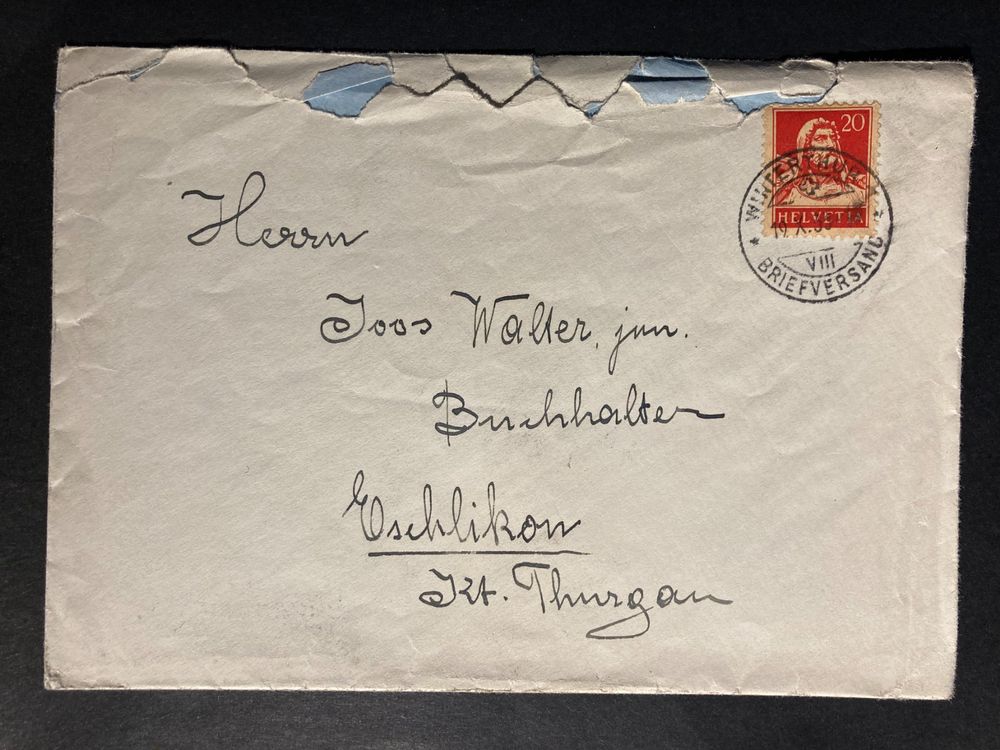 20
HELVETIA
WINTERTHUR 1
19.X.33
VIII
* BRIEFVERSAND *
Herrn
Joos Walter, jun.
Buchhalter
Eschlikon
Kt. Thurgau